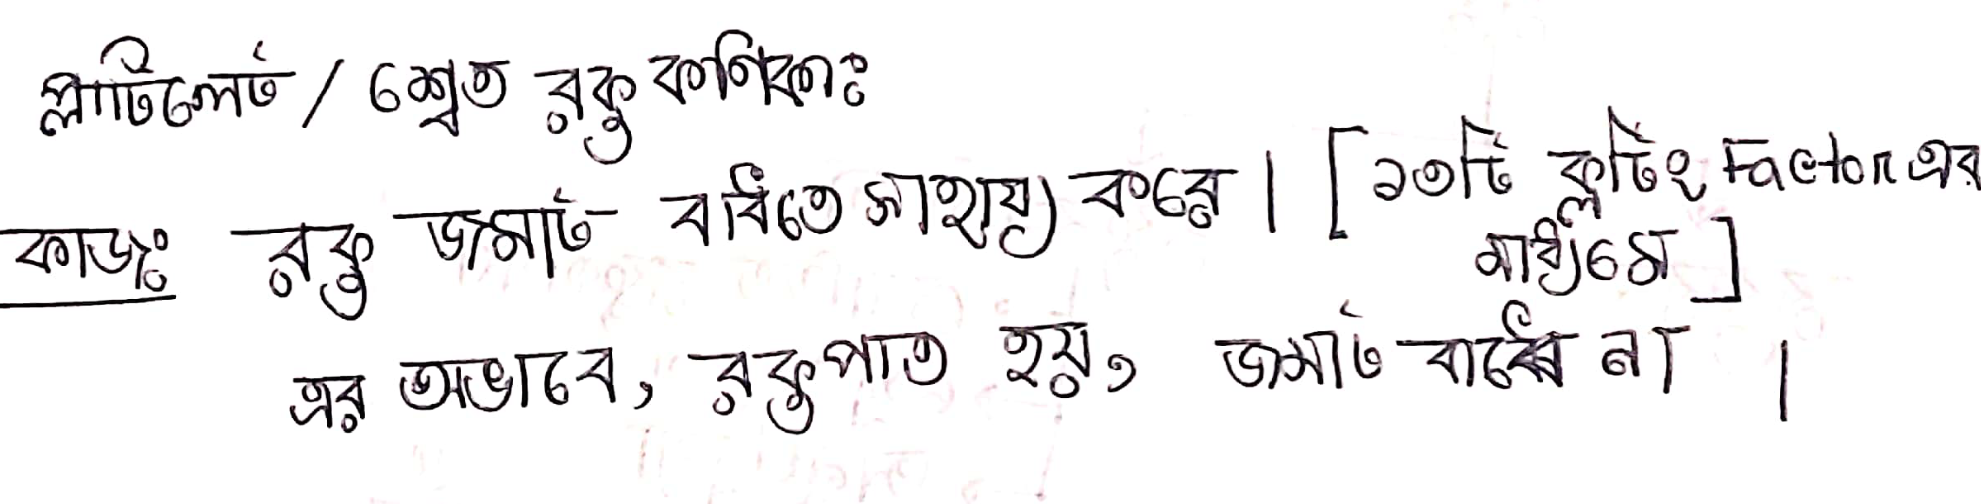 প্লাটিলেট / শ্বেত রক্ত কণিকাঃ
কাজঃ রক্ত জমাট বাধিতে সাহায্য করে। [১৩টি ক্লটিং Factor এর
মাধ্যমে]
এর অভাবে, রক্তপাত হয়, জমাট বাধে না।